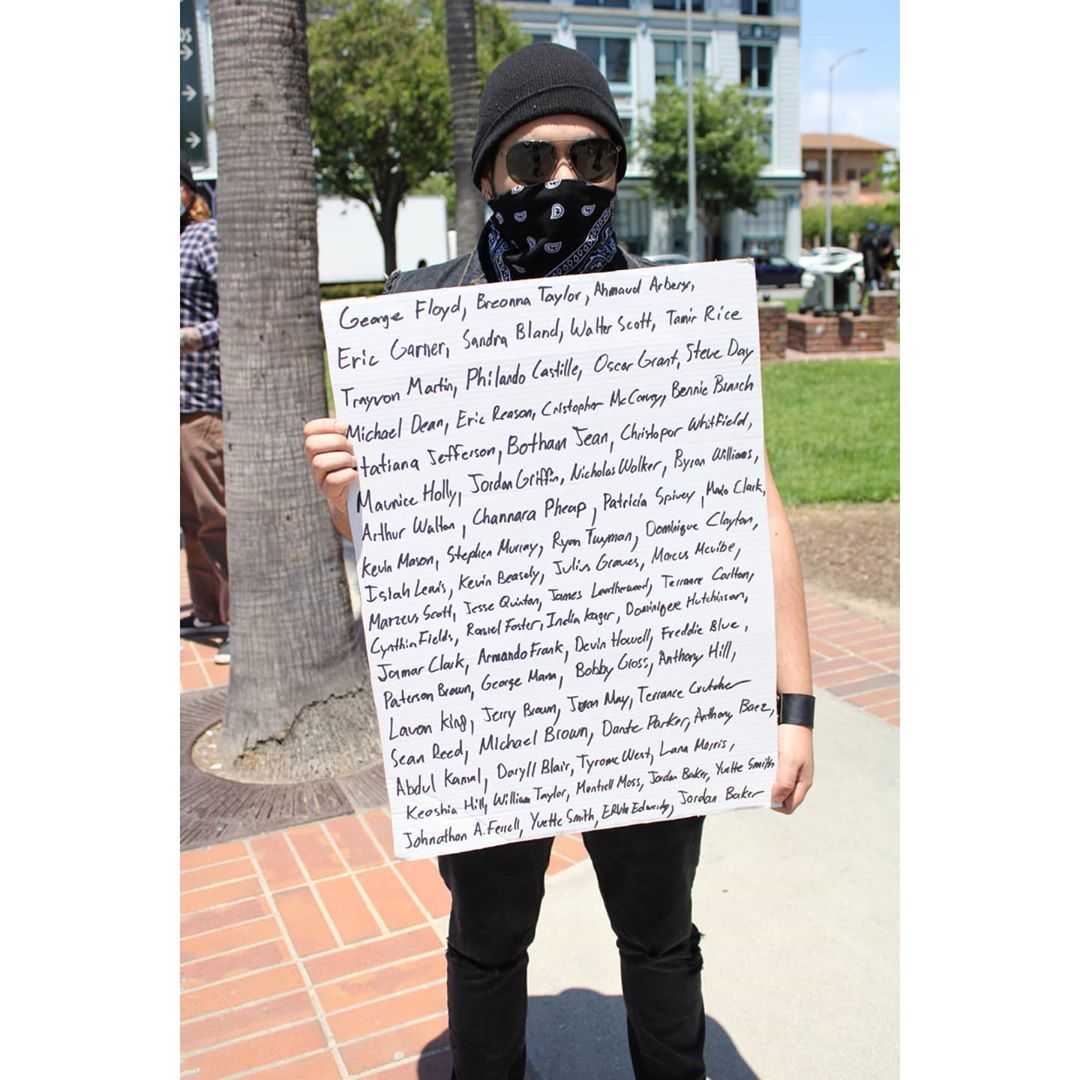 DS
George Floyd, Breonna Taylor, Ahmaud Arbery,
Eric Garner, Sandra Bland, Walter Scott, Tamir Rice
Trayvon Martin, Philando Castille, Oscar Grant, Steve Day
Michael Dean, Eric Reason, Cristopher McCorvey, Bennie Branch
tatiana Jefferson, Botham Jean, Christopor Whitfield,
Maurice Holly, Jordan Griffin, Nicholas Walker, Byron Williams,
Arthur Walton, Channara Pheap, Patricia Spivey, Clark,
Kevin Mason, Stephen Murray, Ryan Twyman, Dominique Clayton,
Isiah Lewis, Kevin Beasely, Julius Graves, Marcus Mcvibe,
Marzeus Scott, Jesse Quinton, James Leatherwood, Terrance Carlton,
Cynthia Fields, Foster, India kager, Dominigee Hutchinson,
Jamar Clark, Armando Frank, Devin Howell, Freddie Blue,
Paterson Brown, George Mann, Bobby Gross, Anthony Hill,
Lavon King, Jerry Brown, May, Terrance Crutcher
Sean Reed, Michael Brown, Dante Parker, Anthony Baez,
Abdul Kamal, Daryll Blair, Tyrone West, Lana Morris,
Keoshia Hill, William Taylor, Montrell Moss, Jordan Baker, Yvette Smith
Johnathon A. Ferrell, Yvette Smith, Ervin Edwards, Jordan Baker